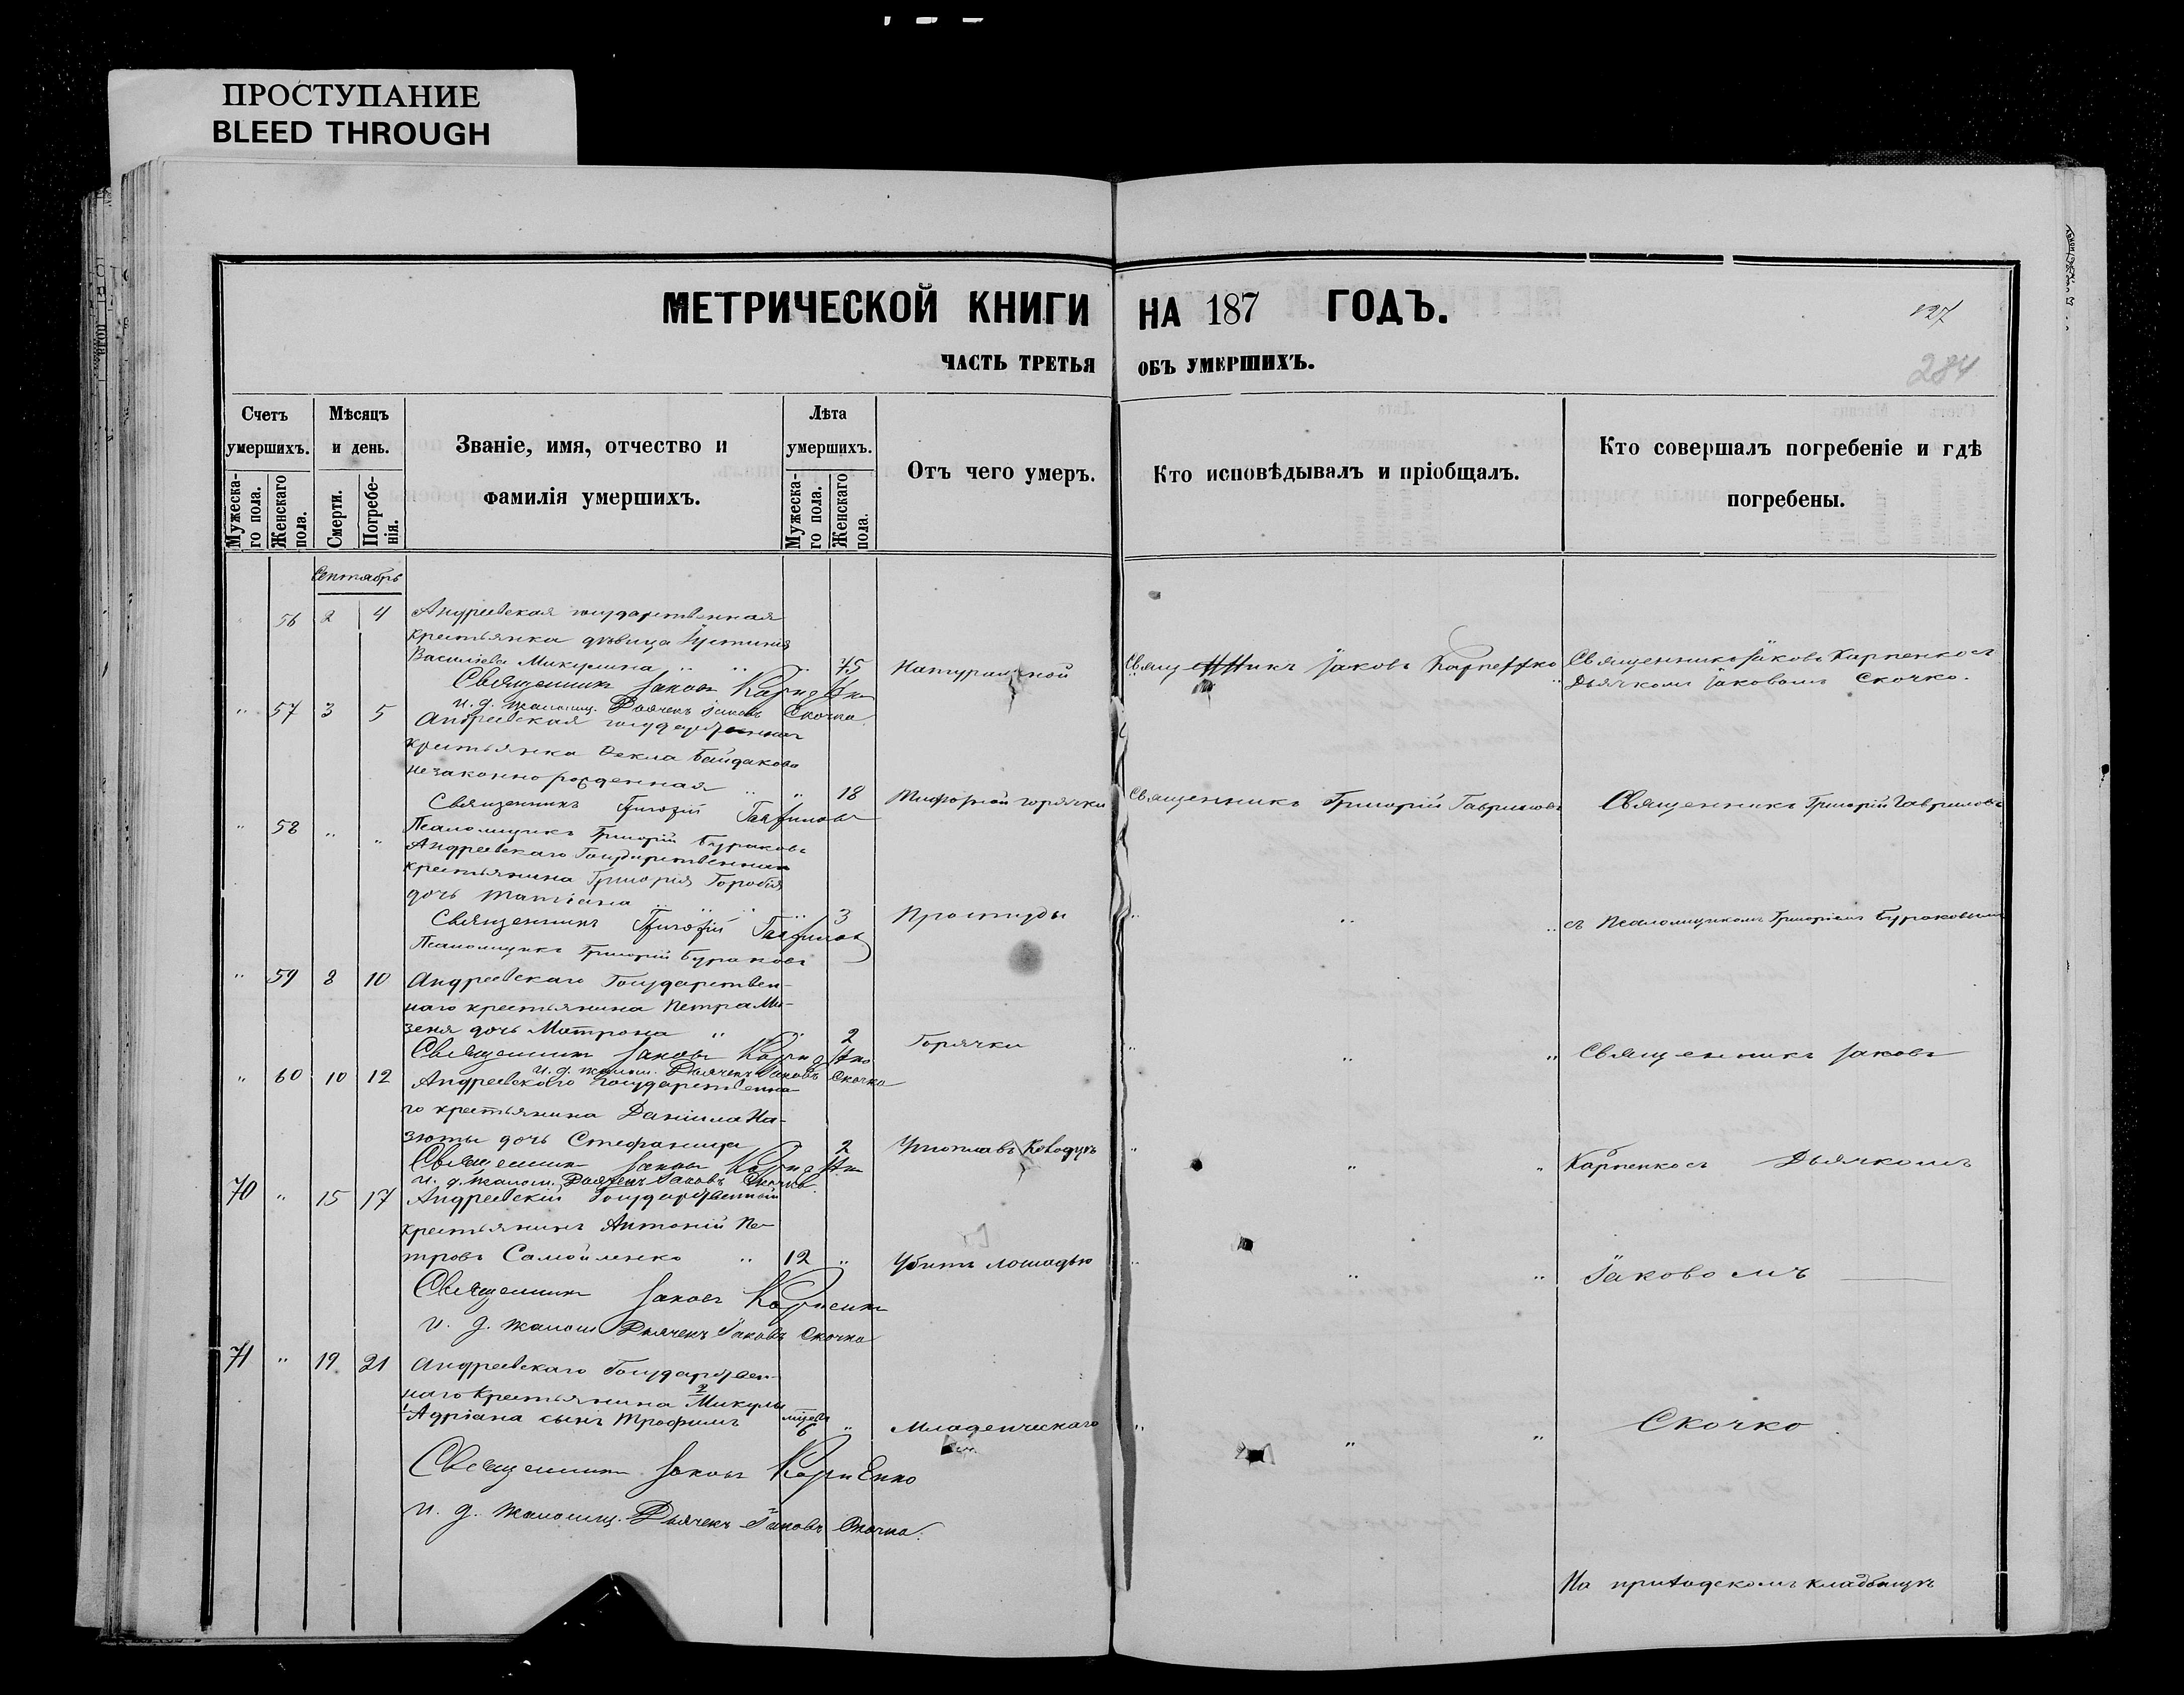 ПРОСТУПАНИЕ
BLEED THROUGH
МЕТРИЧЕСКОЙ КНИГИ НА 187 ГОДЪ.
127
ЧАСТЬ ТРЕТЬЯ ОБЪ УМЕРШИХЪ.
284
Счетъ умершихъ.
Мужеска-
го пола.
Женскаго
пола.
Мѣсяцъ
и день.
Смерти.
Погребе-
нія.
Званіе, имя, отчество и
фамилія умершихъ.
Лѣта
умершихъ.
Мужеска-
го пола.
Женскаго
пола.
Отъ чего умеръ.
Кто исповѣдывалъ и пріобщалъ.
Кто совершалъ погребеніе и гдѣ
погребены.
Сентябрь
" 56 2 4 Андреевская государственная
крестьянка дѣвица Іустинія
Василіева Микулина " " " 75 Натуральной Священникъ Іаковъ Карпенко Священникъ Іаковъ Карпенко съ
Дьячкомъ Іаковомъ Скочко.
Священникъ Іаковъ Карпенко
и. д. Псаломщ. Дьячекъ Іаковъ Скочко
" 57 3 5 Андреевская государственная
крестьянка Ѳекла Байдакова
незаконнорожденная " " 18 горячки Священникъ Григорій Гавриловъ Священникъ Григорій Гавриловъ
Священникъ Григорій Гавриловъ
Псаломщикъ Григорій Бураковъ
" 58 " " Андреевскаго Государственнаго
крестьянина Григорія Горобія
дочь Татіана " " " 3 Простуды " " " съ Псаломщикомъ Григоріемъ Бураковымъ
Священникъ Григорій Гавриловъ
Псаломщикъ Григорій Бураковъ
" 59 8 10 Андреевскаго Государствен-
наго крестьянина Петра Ми-
зеня дочь Матрона " " 2 Горячки " " " Священникъ Іаковъ
Священникъ Іаковъ Карпенко
и. д. Псаломщ. Дьячекъ Іаковъ Скочко
" 60 10 12 Андреевскаго Государственна-
го крестьянина Даніила На-
зюты дочь Стефанида 2 " " " Карпенко съ Дьячкомъ
Священникъ Іаковъ Карпенко
и. д. Псаломщ. Дьячекъ Іаковъ Скочко
70 " 15 17 Андреевскій Государственный
крестьянинъ Антоній Пе-
тровъ Самойленко " 12 " Убитъ лошадью " " " Іаковомъ
Священникъ Іаковъ Карпенко
и. д. Псаломщ Дьячекъ Іаковъ Скочко
71 " 19 21 Андреевскаго Государствен-
наго Крестьянина 2 Микулы
1 Адріана сынъ Трофимъ 6 " Младенческаго " " " Скочко
Священникъ Іаковъ Карпенко
и. д. Псаломщ. Дьячекъ Іаковъ Скочко.
На приходскомъ кладбищѣ